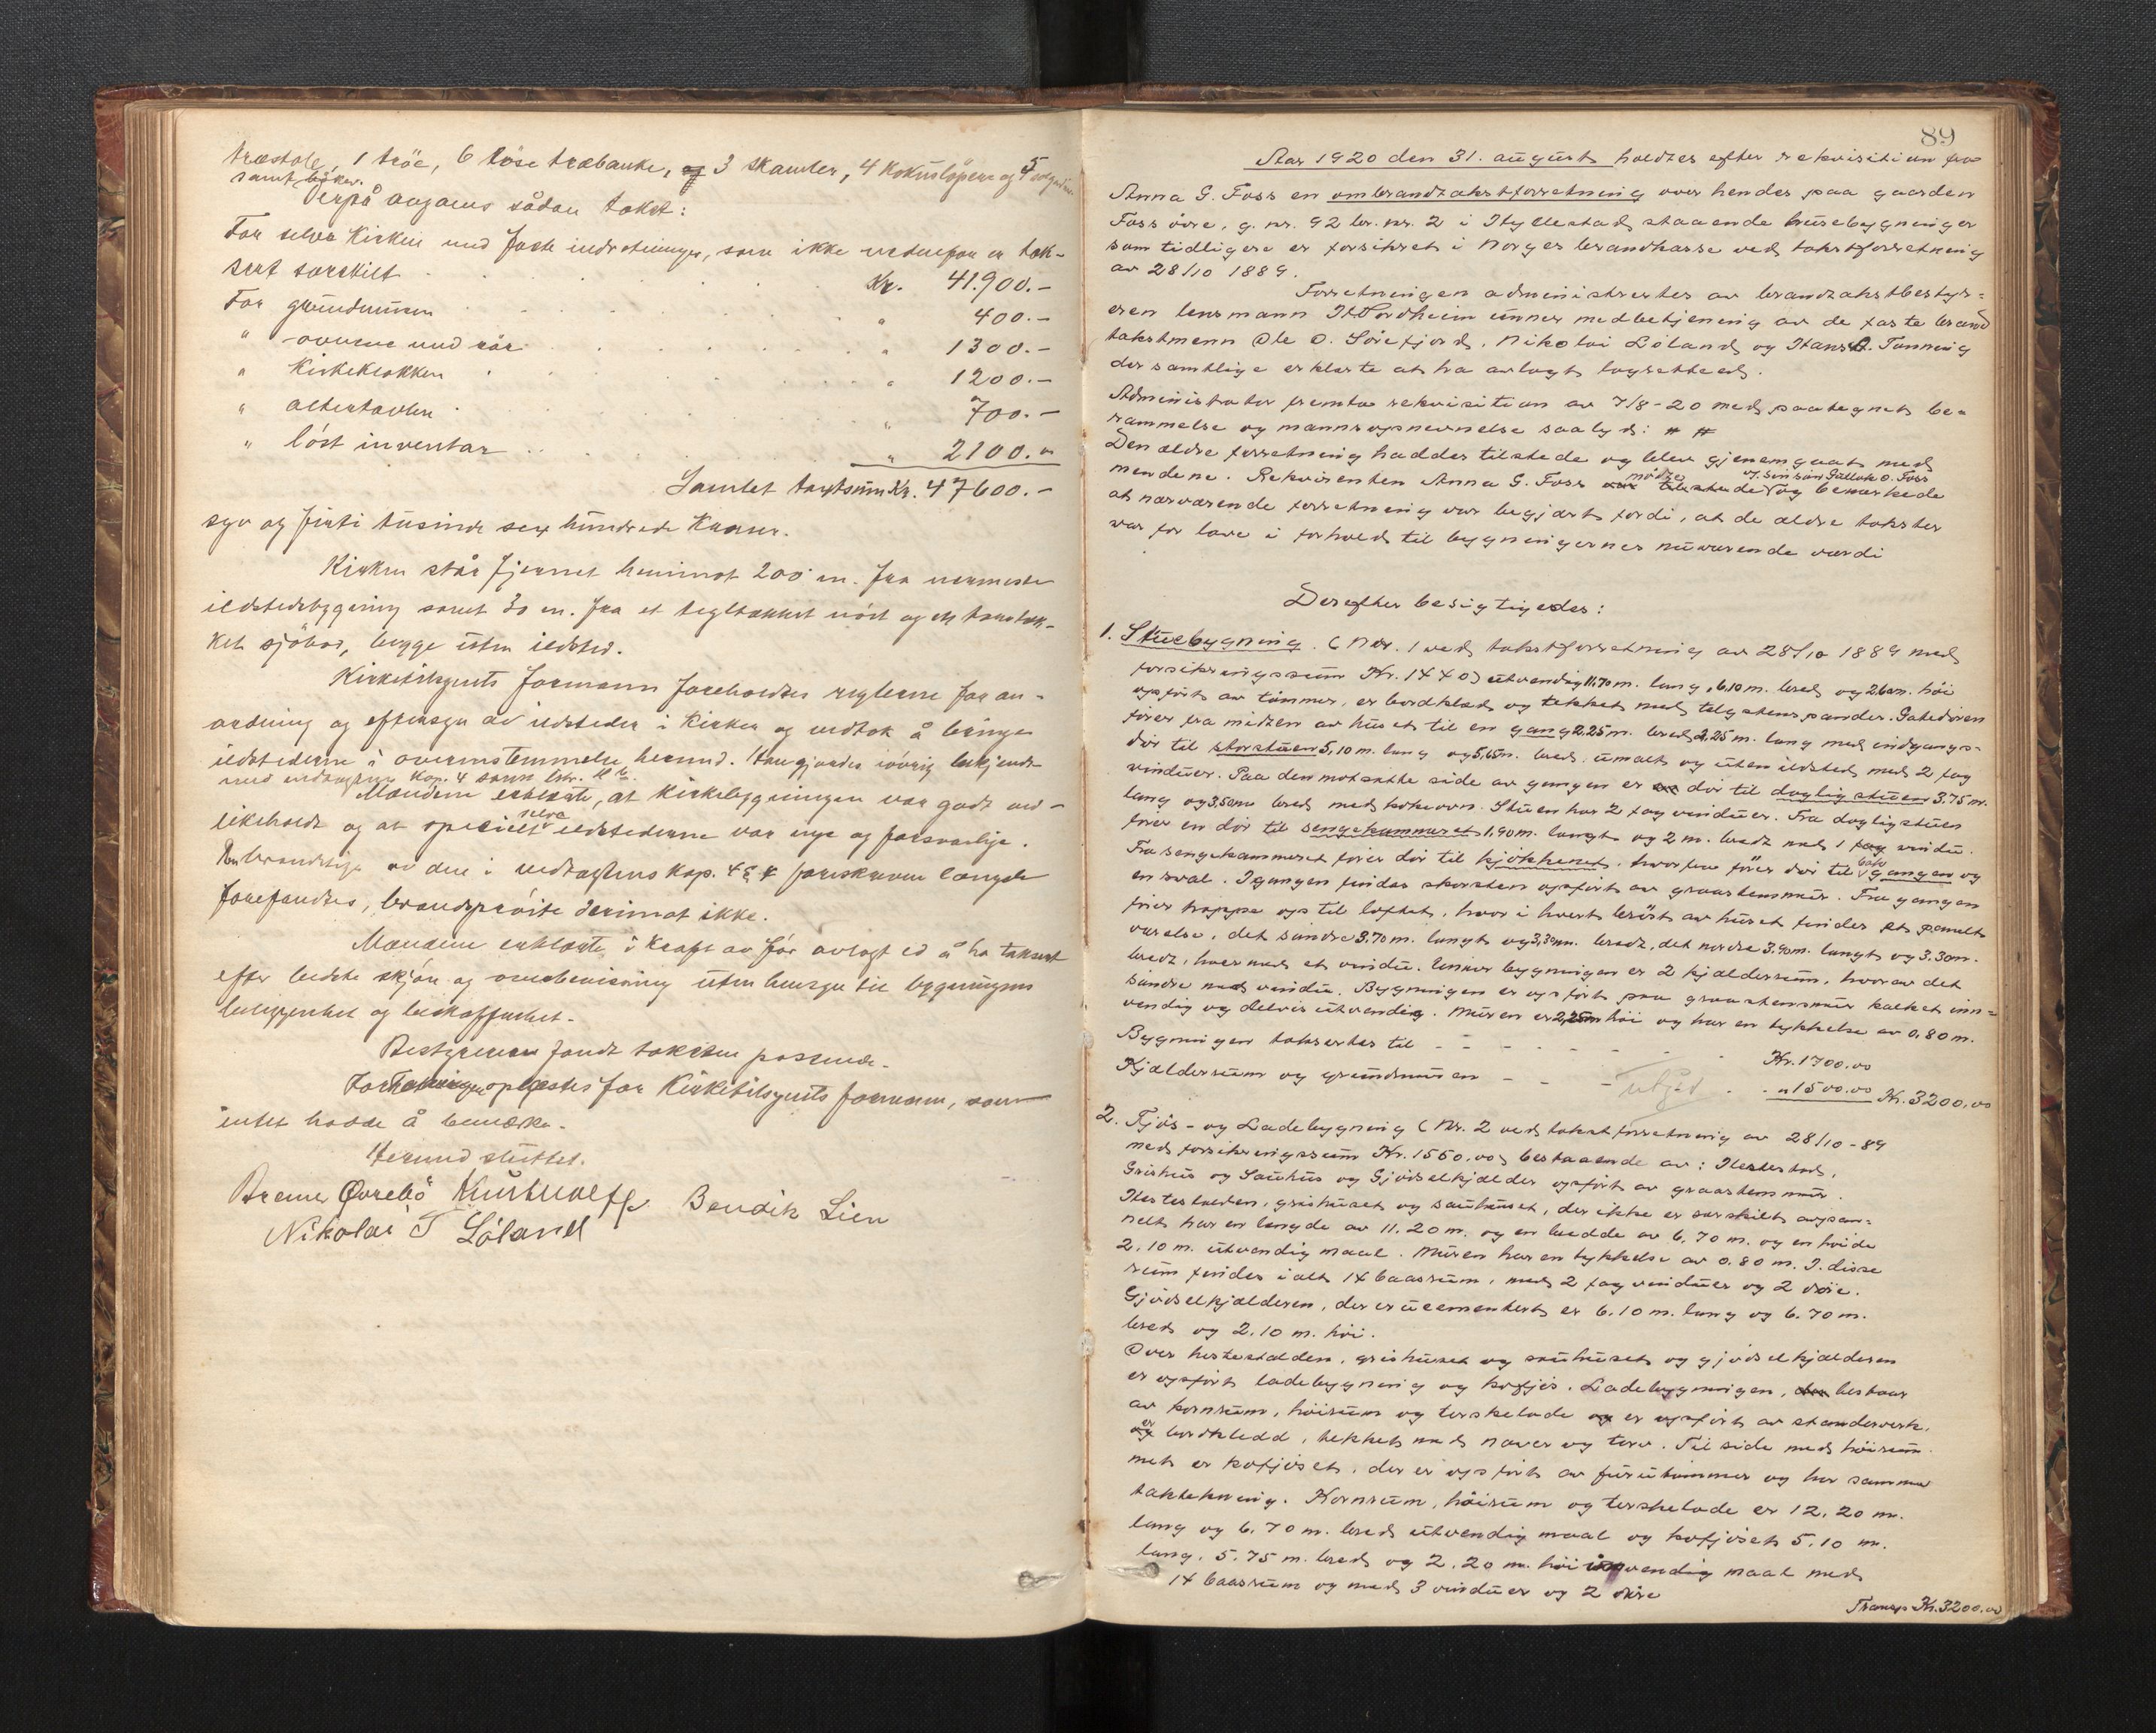 træstole, 1 kröe, 6 löse træbænke, og 3 skamler, 4 kokuslöpere og 5
samt böker.
Derpå avgaves sådan takst:
For selve Kirken med faste indretninger, som ikke nedenfor er tak-
sert særskilt Kr. 41.900.-
For grundmuren " 400.-
" ovnene med rör " 1300.-
" Kirkeklokken " 1200.-
" altertavlen " 700.-
" löst inventar " 2100.-
Samlet takstsum Kr. 47600.-
syv og firti tusinde sex hundrede Kroner.
Kirken står fjernet henimot 200 m. fra nærmeste
ildstedsbygning samt 30 m. fra et tegltækket nöst og et torvtæk-
ket sjöbod, begge uten ildsted.
Kirketilsynets formann foreholdtes reglerne for an-
ordning og eftersyn av ildsteder i Kirker og vedtok å bringe
ildstederne i overensstemmelse hermed. Han gjordes iövrig bekjendt
med vedtægtens Kap. 4 samt lstr. H b.
Mændene erklærte, at Kirkebygningen var godt ved-
likeholdt og at specielt selve ildstederne var nye og forsvarlige.
Brandstige av den i vedtægtens Kap. 4 § 4 foreskrevne længde
forefandtes, brandspröite derimot ikke.
Mændene erklærte i kraft av för avlagt ed å ha taksert
efter bedste skjön og overbevisning uten hensyn til bygningens
beliggenhet og beskaffenhet.
Bestyreren fandt taksten passende.
Forretningen oplæstes for Kirketilsynets formann, som
intet hadde å bemærke.
Hermed sluttet.
Bremer Övrebö Bendik Lien
Nikolai T Löland
89
Aar 1920 den 31. august holdtes efter rekvisition fra
Anna G. Foss en ombrandtakstforretning over hendes paa gaarden
Foss övre, g. nr. 92 br. nr. 2 i Hyllestad staaende husebygninger
som tidligere er forsikret i Norges brandkasse ved takstforretning
av 28/10 1889.
Forretningen administrertes av brandtakstbesty-
eren lensmann H. Nordheim under medbetjening av de faste brand
takstmenn Ole O. Sörefjord, Nikolai Löland og Hans A. Tunning
der samtlige erklærte at ha avlagt lagretteed.
Administrator fremla rekvisition av 7/8-20 med paategnet be-
rammelse og mannsopnevnelse saalyd: # #
Den ældre forretning haddes tilstede og blev gjenemgaat med
mendene. Rekvirenten Anna G. Foss mödte og sin sön Gullak O. Foss og bemærkede
at nærværende forretning var begjært fordi, at de ældre takster
var for lave i forhold til bygningernes nuværende værdi
Derefter besigtigedes:
1. Stuebygning. (Nr. 1 ved takstforretning av 28/10 1889 med
forsikringssum Kr. 1440) utvendig 11.70 m. lang, 6.10 m. bred og 2.60 m. höi
opfört av tömmer, er bordklæd og tekket med telgstenspander. Gatedören
förer fra midten av huset til en gang 2.25 m. bred 2.25 m. lang med indgangs-
dör til storstuen 5,10 m. lang og 5,65 m. bred, umalt og uten ildsted med 2 fag
vinduer. Paa den motsatte side av gangen er dör til dagligstuen 3.75 m.
lang og 3.50 m bred med kokeovn. Stuen har 2 fag vinduer. Fra dagligstuen
förer en dör til sengekammeret 1,90 m. langt og 2 m. bredt med 1 fag vindu.
Fra sengekammeret förer dör til kjökkenet, hvorfra förer dör til gangen og
en sval. I gangen findes skorsten opfört av graastensmur. Fra gangen
förer trappe op til loftet, hvor i hvert bröst av huset findes et panelt
værelse, det söndre 3.70 m. langt og 3,30 m. bredt, det nordre 3.90 m. langt og 3.30 m.
bredt, hver med et vindu. Under bygningen er 2 kjælderrum, hvorav det
söndre med vindu. Bygningen er opfört paa graastensmur kalket inn-
vendig og delvis utvendig. Muren er 2,25 m höi og har en tykkelse av 0.80 m.
Bygningen taksertes til Kr. 1700.00
Kjælderrum og grundmuren - - - utgjed " 1500.00 Kr. 3200.00
2. Fjös- og Ladebygning (Nr. 2 ved takstforretning av 28/10-89
med forsikringssum Kr. 1550.00) bestaaende av: Hestestald,
Grishus og Sauhus og Gjödselkjælder opfört av graastensmur.
Hestestalden, grishuset og sauhuset, der ikke er særskilt avpan-
nelt har en længde av 11.20 m. og en bredde av 6.70 m. og en höide
2.10 m. utvendig maal. Muren har en tykkelse av 0.80 m. I disse
rum findes ialt 14 baasrum, med 2 fag vinduer og 2 döre.
Gjödselkjælderen, der er ucementert er 6.10 m. lang og 6.70 m.
bred og 2.10 m. höi.
Over hestestalden, grishuset og sauhuset og gjödselkjælderen
er opfört ladebygning og kofjös. Ladebygningen, der bestaar
av kornrum, höirum og terskelade og er opfört av standerverk,
er bordkledd, tekket med næver og torv. Til side med höirum-
met er kofjöset, der er opfört av furutömmer og har samme
taktekning. Kornrum, höirum og terskelade er 12,20 m.
lang og 6.70 m. bred utvendig maal og kofjöset 5.10 m.
lang, 5.75 m. bred og 2.20 m. höi innvendig maal med
14 baasrum og med 3 vinduer og 2 döre
Transp. Kr. 3200.00